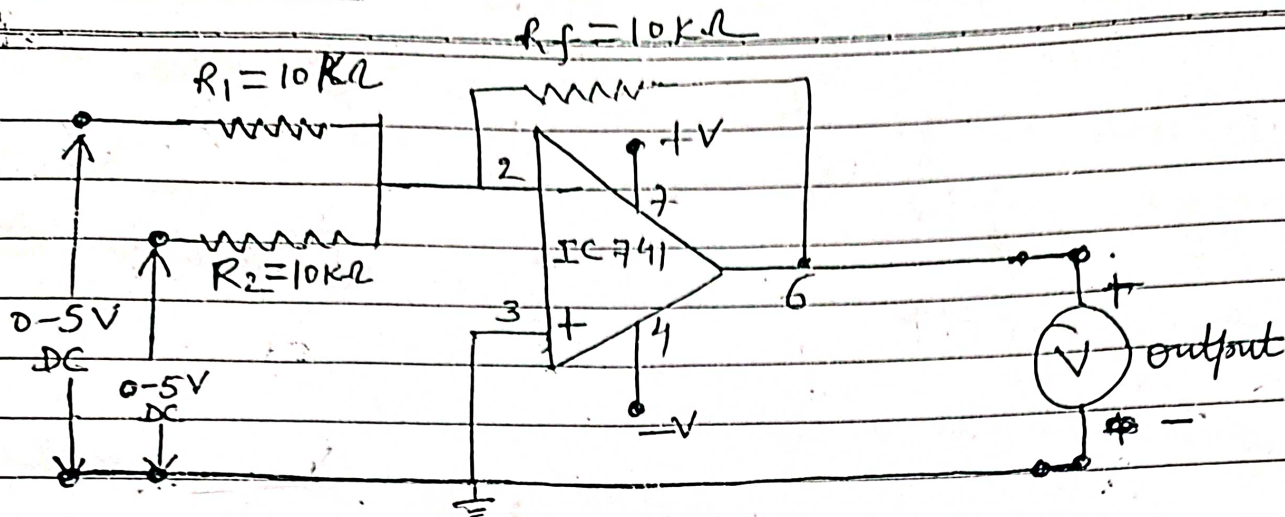 Rf = 10KΩ
R1 = 10KΩ
+V
2
−
7
IC 741
R2 = 10KΩ
6
3
+
4
+
0-5V
DC
0-5V
DC
V
output
−V
−